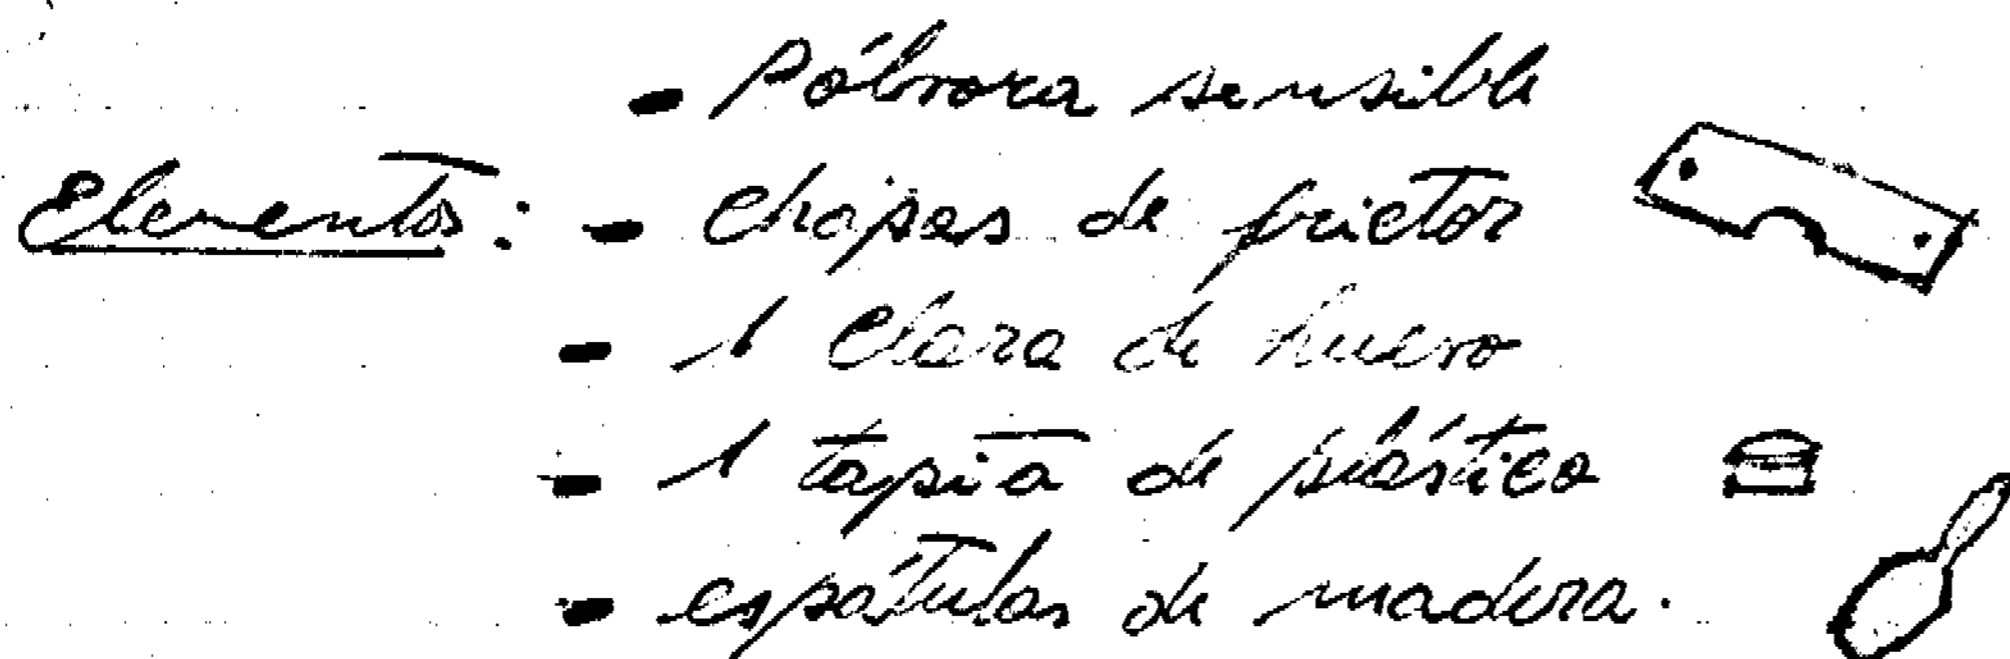 - Pólvora sensible
Elementos: - chapas de frictor
- 1 Clara de huevo
- 1 tapita de plástico
- espátulas de madera.